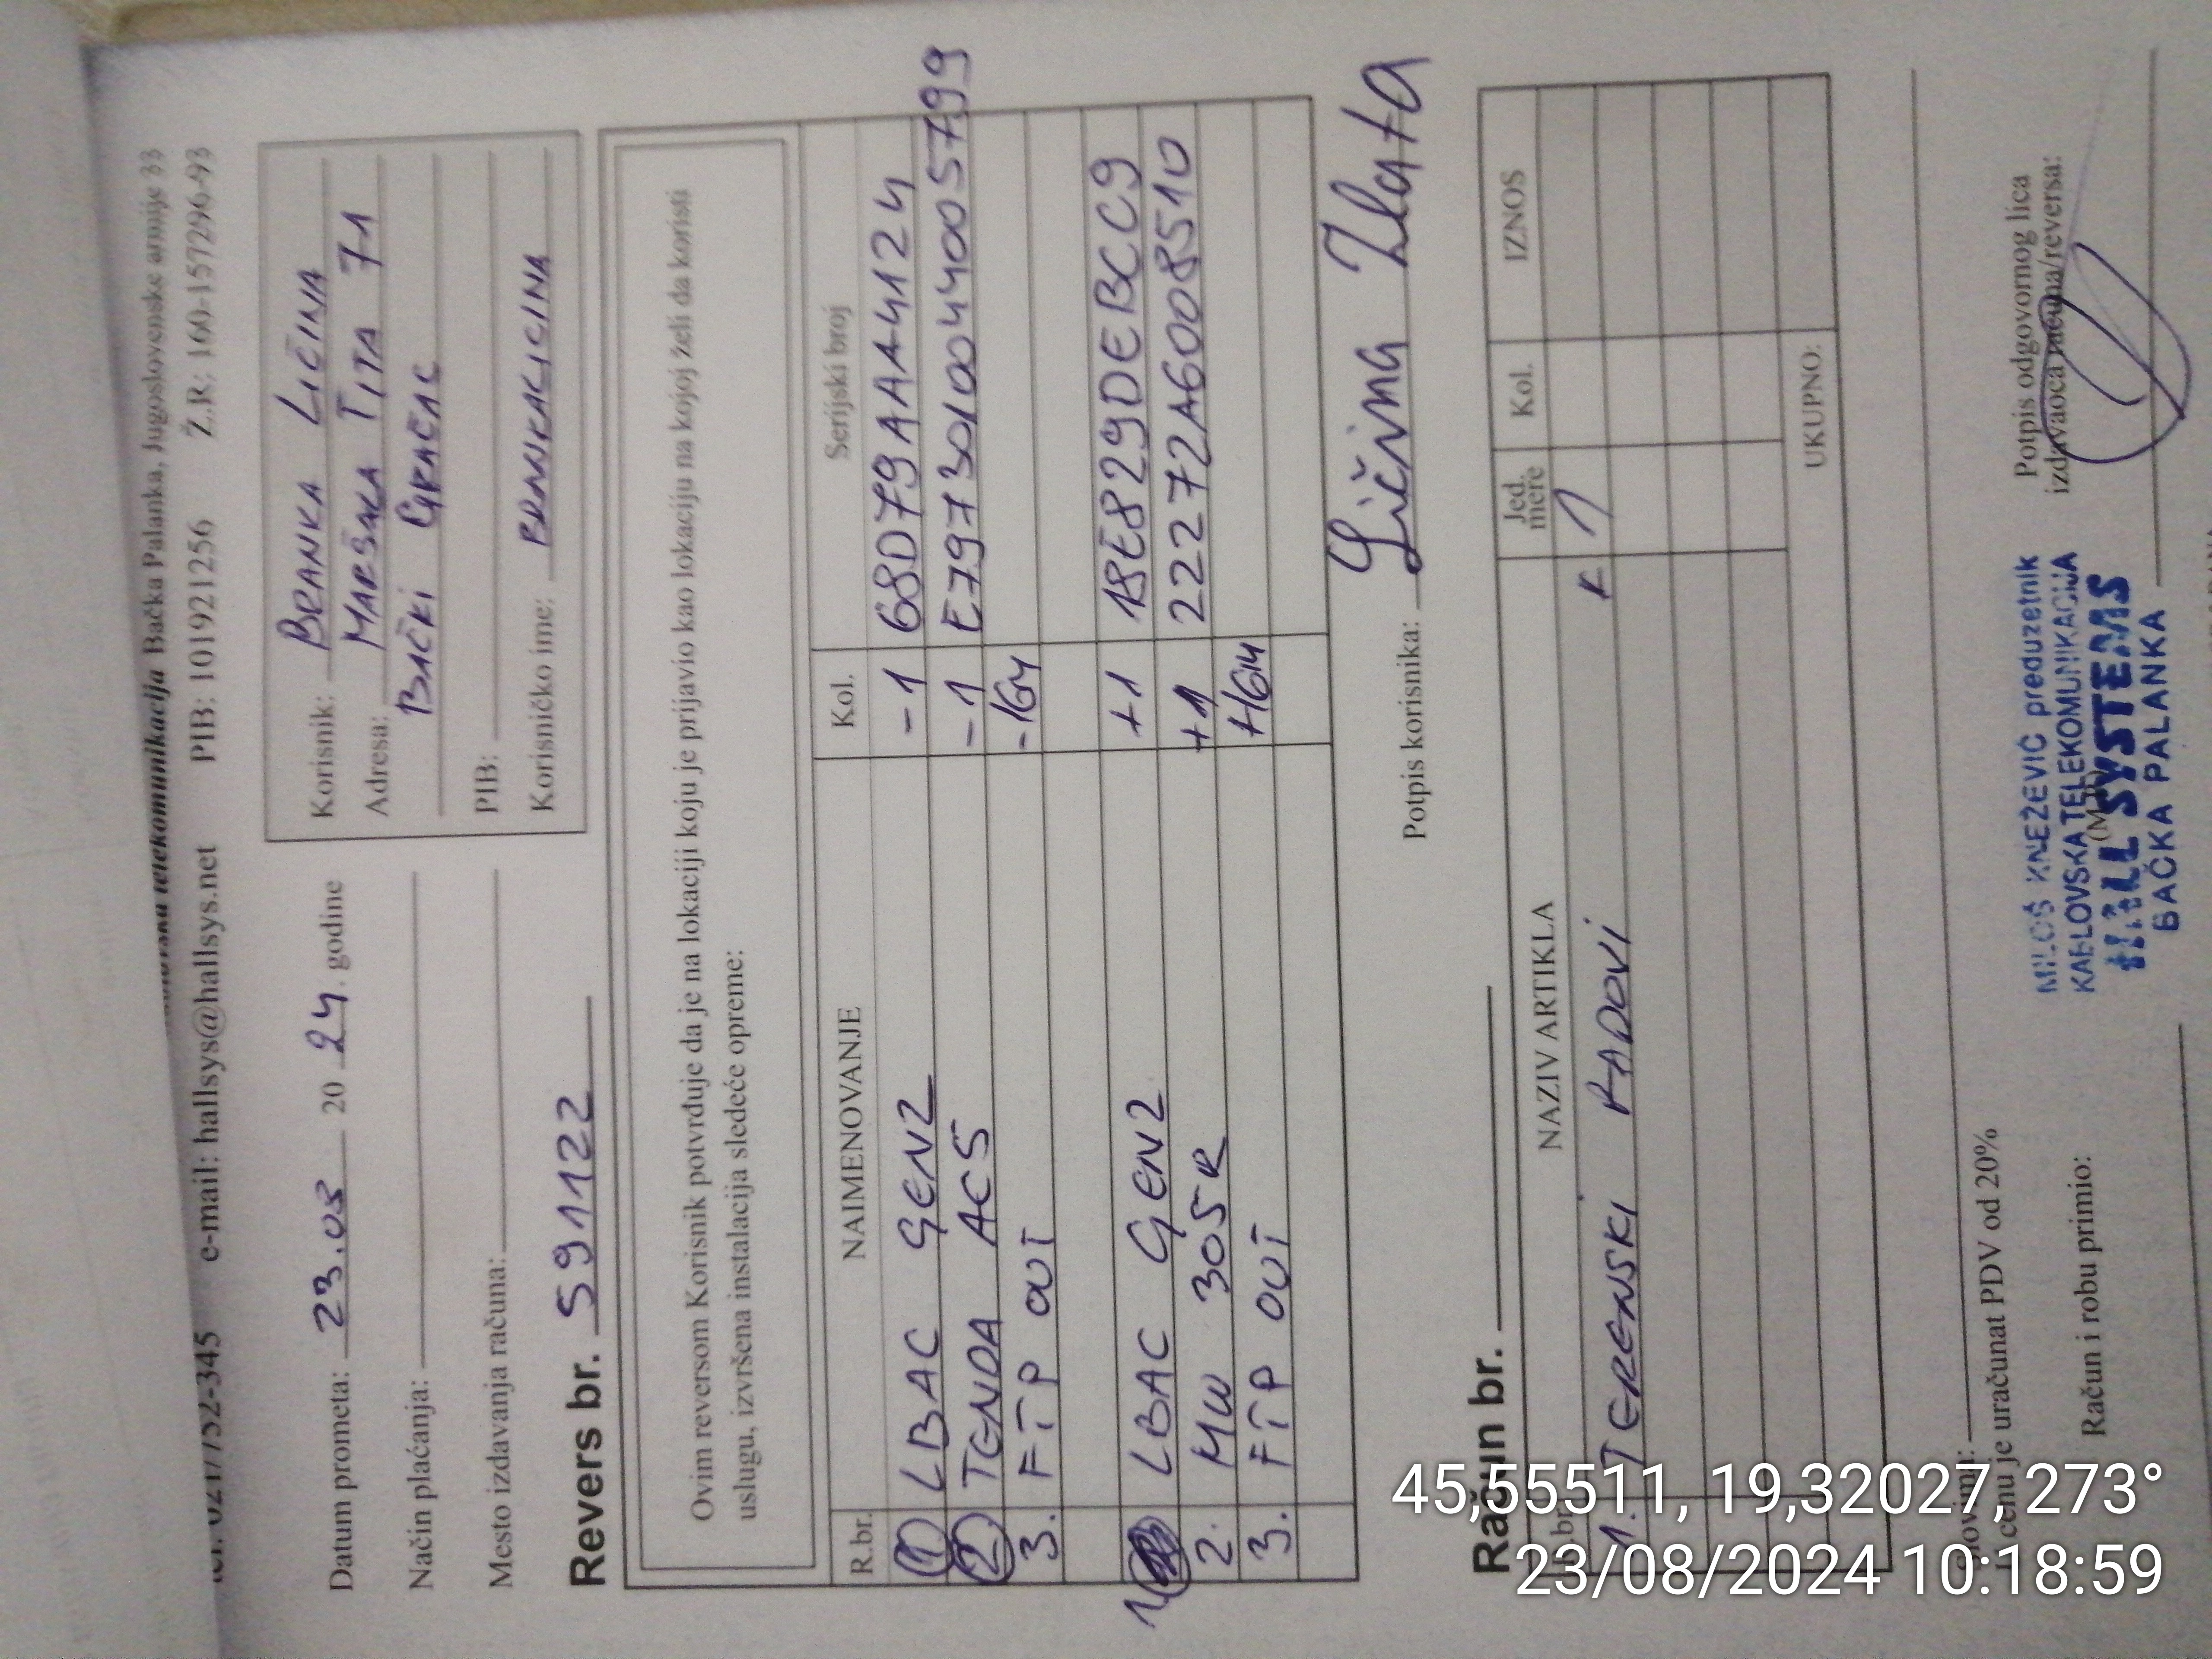 telekomunikacija Bačka Palanka, Jugoslovenske armije 33
752-345 e-mail: hallsys@hallsys.net PIB: 101921256 Ž.R: 160-157296-93
Datum prometa: 23.08 20 24. godine
Način plaćanja:
Mesto izdavanja računa:
Korisnik: BRANKA LIČINA
Adresa: MARŠALA TITA 71
BAČKI GRAČAC
PIB:
Korisničko ime: BRANKALICINA
Revers br. 591122
Ovim reversom Korisnik potvrđuje da je na lokaciji koju je prijavio kao lokaciju na kojoj želi da koristi
uslugu, izvršena instalacija sledeće opreme:
R.br. NAIMENOVANJE Kol. Serijski broj
1 LBAC GEN2 -1 68D79AAA4124
2 TENDA AC5 -1 E7973010044005799
3. FTP OUT -16M
1 LBAC GEN2 +1 18E829DEBCC9
2. MW 305R +1 22272A6008510
3. FTP OUT +16M
Potpis korisnika: Ličina Zlata
Račun br.
R.br. NAZIV ARTIKLA Jed. mere Kol. IZNOS
1. TERENSKI RADOVI 1
UKUPNO:
Slovima:
U cenu je uračunat PDV od 20%
Račun i robu primio:
(M.P.)
MILOŠ KNEŽEVIĆ preduzetnik
KABLOVSKA TELEKOMUNIKACIJA
HALL SYSTEMS
BAČKA PALANKA
Potpis odgovornog lica
izdavaoca računa/reversa:
45,55511, 19,32027, 273°
23/08/2024 10:18:59